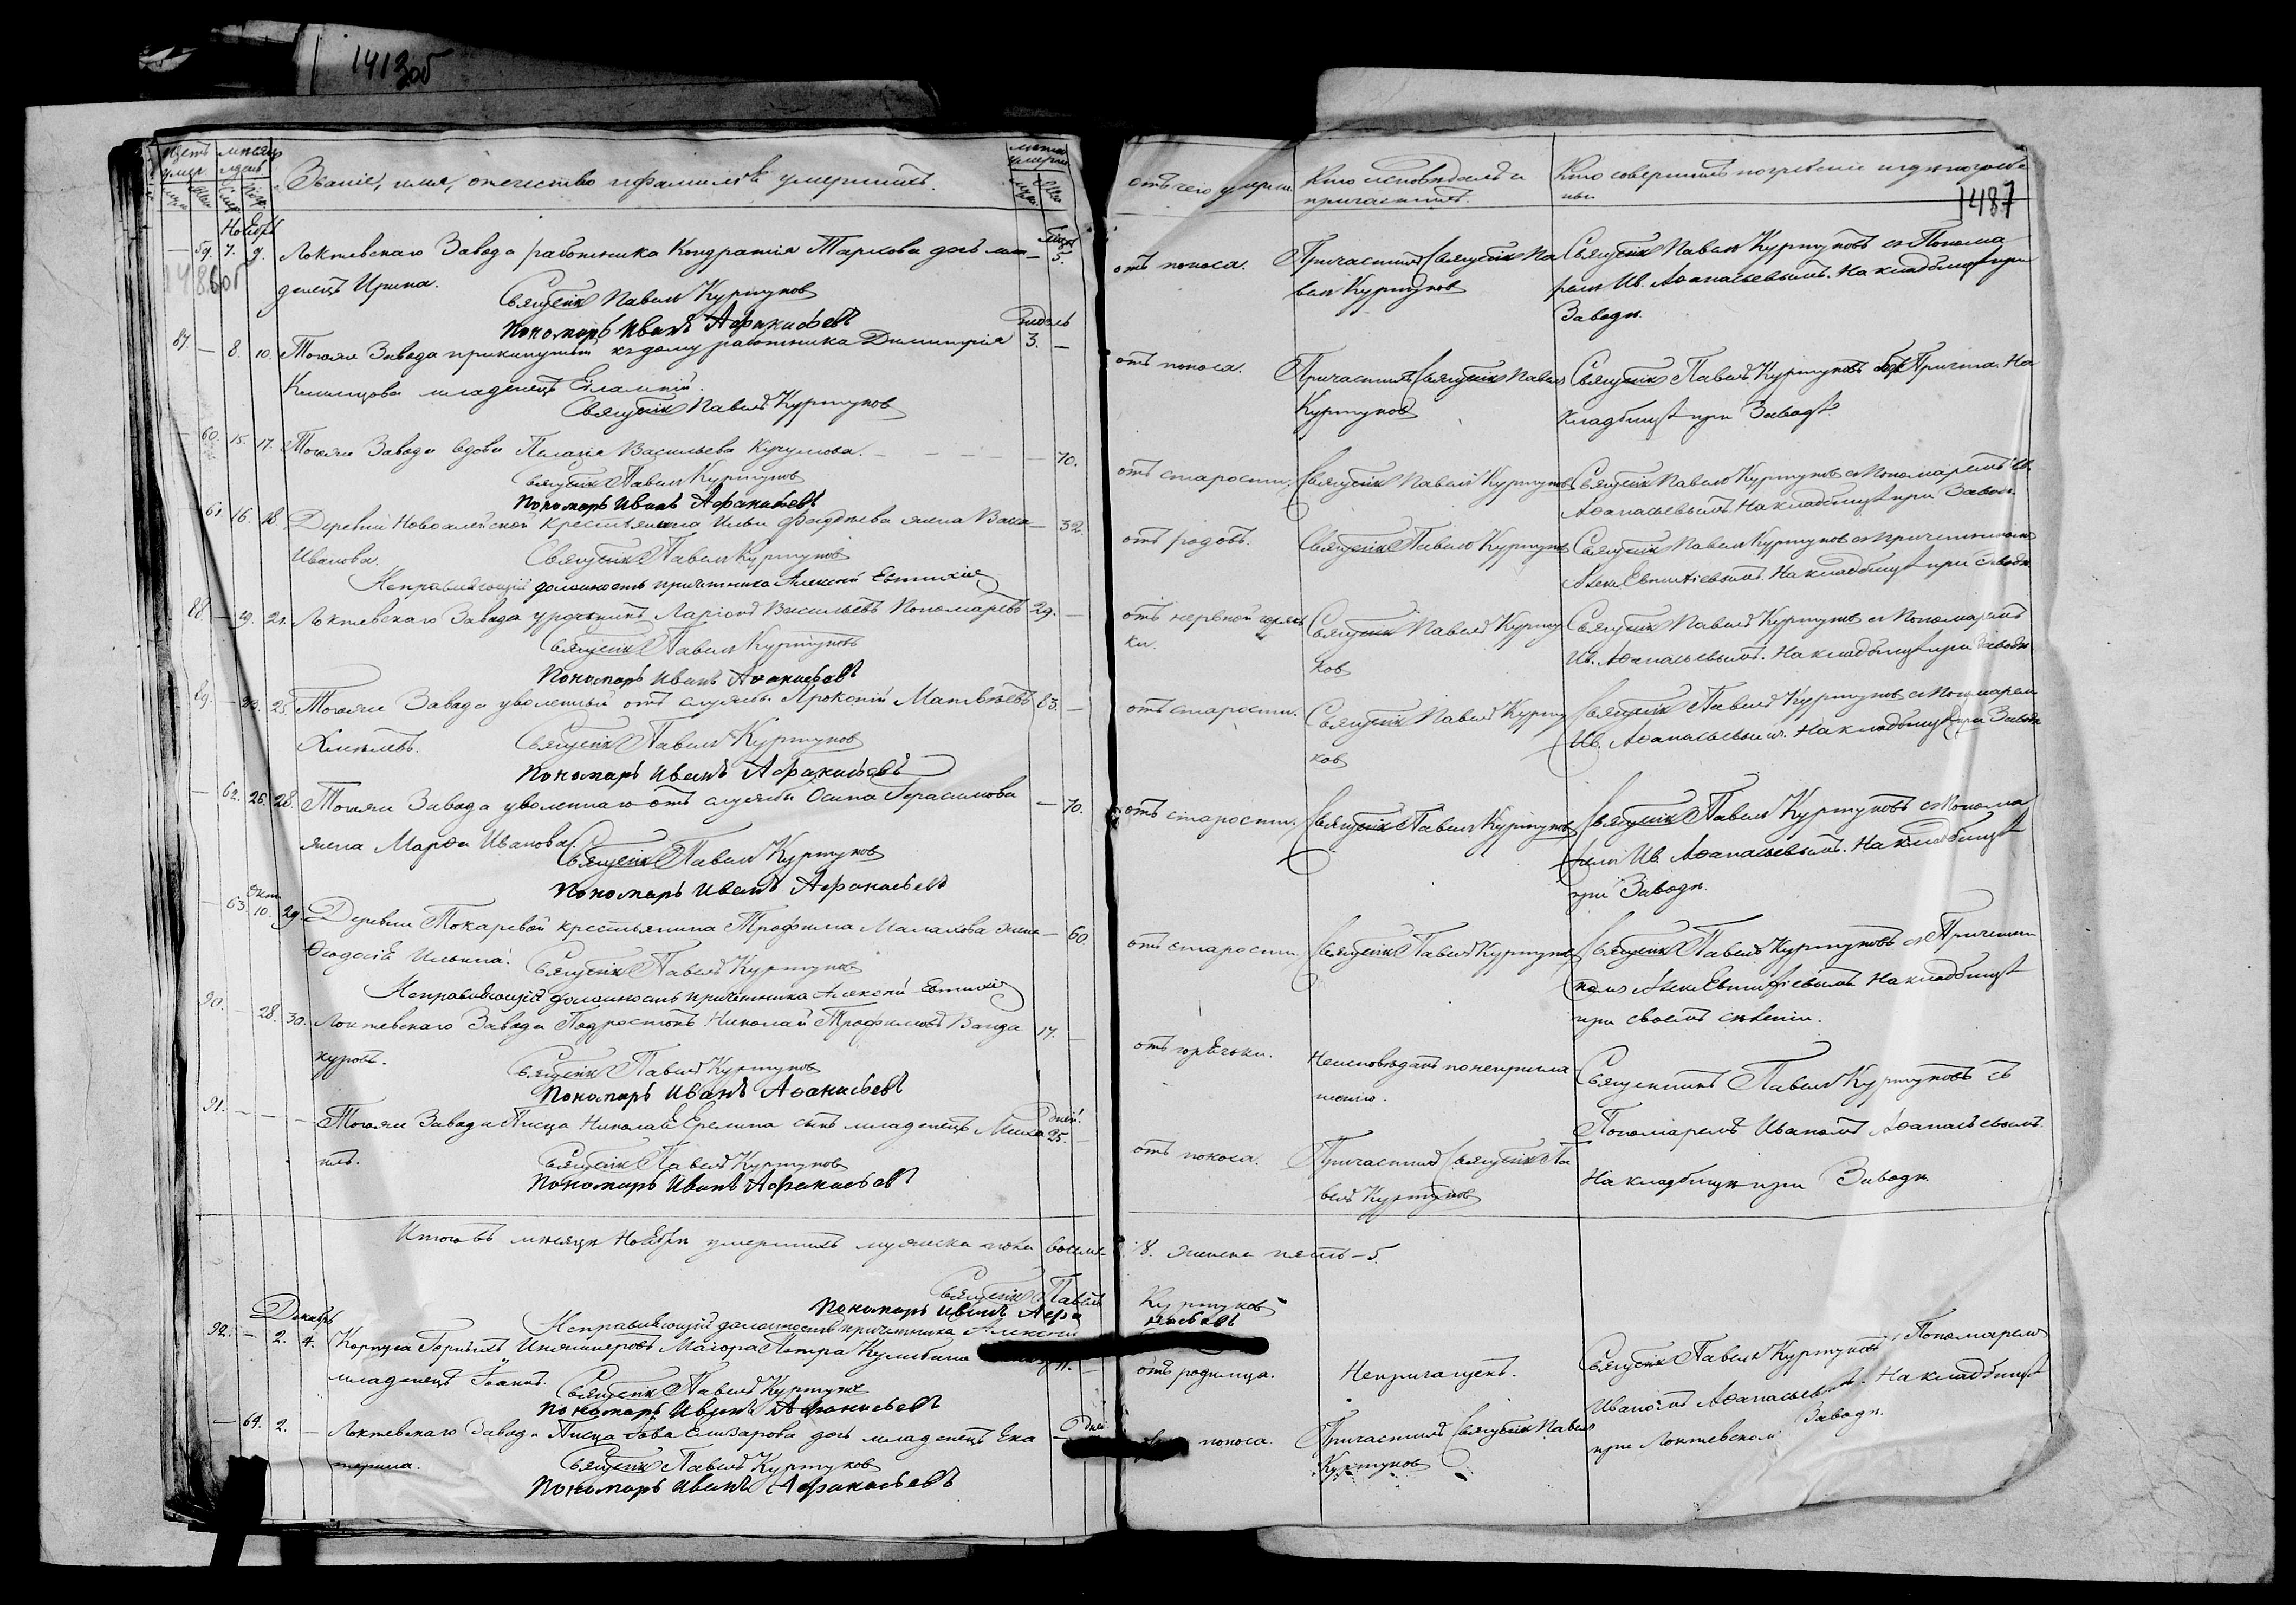 1413об
Счетъ умер.
Мѣсяцъ и день
Званіе, имя, отечество и фамилія умершихъ.
Лѣта умерш.
отъ чего умерли.
Кто исповѣдалъ и
причастилъ.
Кто совершилъ погребеніе и гдѣ погребе-
ны
1487
Ноябрь
— 59. 7. 9. Локтевскаго Завода работника Кондратія дочь мла- — 5.
денецъ Ирина.
Священникъ Павелъ Куртуковъ
Пономарь Иванъ Афанасьевъ
отъ поноса.
Причастилъ Священникъ Па
велъ Куртуковъ
Священникъ Павелъ Куртуковъ съ Понома
ремъ Ив. Аѳанасьевымъ. На кладбищѣ при
Заводѣ.
1486об
Недѣль
87. — 8. 10. Тогоже Завода прикинутый къ дому работника Димитрія 3. —
младенецъ
Священникъ Павелъ Куртуковъ
отъ поноса.
Причастилъ Священникъ Павелъ
Куртуковъ
Священникъ Павелъ Куртуковъ безъ Причта. На
кладбищѣ при Заводѣ
— 60. 15. 17. Тогоже Завода вдова Пелагія Васильева — 70.
Священникъ Павелъ Куртуковъ
Пономарь Иванъ Афанасьевъ
отъ старости.
Священникъ Павелъ Куртуковъ
Священникъ Павелъ Куртуковъ съ Пономаремъ Ив.
Аѳанасьевымъ. На кладбищѣ при Заводѣ.
— 61. 16. 18. Деревни Новоалейской крестьянина Ильи Фадѣева жена — 32.
Иванова.
Священникъ Павелъ Куртуковъ
Исправляющій должность причетника Алексѣй Евтихіевъ
отъ родовъ.
Священникъ Павелъ Куртуковъ
Священникъ Павелъ Куртуковъ съ Причетникомъ
Алек. Евтихіевымъ. На кладбищѣ при
88. — 19. 21. Локтевскаго Завода урочникъ Ларіонъ Васильевъ Пономаревъ 29. —
Священникъ Павелъ Куртуковъ
Пономарь Иванъ Аѳанасьевъ
отъ нервной горяч
ки.
Священникъ Павелъ Курту
ковъ
Священникъ Павелъ Куртуковъ съ Пономаремъ
Ив. Аѳанасьевымъ. На кладбищѣ при Заводѣ
89. — 23. 25. Тогоже Завода уволенный отъ службы Прокопій Матвѣевъ 83. —
Хмѣлевъ.
Священникъ Павелъ Куртуковъ
Пономарь Иванъ Афанасьевъ
отъ старости.
Священникъ Павелъ Курту
ковъ
Священникъ Павелъ Куртуковъ съ Пономаремъ
Ив. Аѳанасьевымъ. На кладбищѣ при Заводѣ
— 62. 26. 28. Тогоже Завода уволеннаго отъ службы Осипа Герасимова — 70.
жена Марѳа Иванова.
Священникъ Павелъ Куртуковъ
Пономарь Иванъ Афанасьевъ
отъ старости.
Священникъ Павелъ Куртуковъ
Священникъ Павелъ Куртуковъ съ Понома
ремъ Ив. Аѳанасьевымъ. На кладбищѣ
при Заводѣ.
— 63. 10. 29. Деревни Токаревой крестьянина Трофима Малахова жена — 60.
Ѳеодосія Ильина.
Священникъ Павелъ Куртуковъ
Исправляющій должность причетника Алексѣй Евтихіевъ
отъ старости.
Священникъ Павелъ Куртуковъ
Священникъ Павелъ Куртуковъ съ Причетни
комъ Алек. Евтихіевымъ На кладбищѣ
при своемъ селеніи.
90. — 28. 30. Локтевскаго Завода Подростокъ Николай Трофимовъ 17. —
куровъ.
Священникъ Павелъ Куртуковъ
Пономарь Иванъ Аѳанасьевъ
отъ горячки.
Неисповѣданъ по
Священникъ Павелъ Куртуковъ съ
Пономаремъ Иваномъ Аѳанасьевымъ.
На кладбищѣ при Заводѣ.
дней.
91. — — — Тогоже Завода Писца Николая Еремина сынъ младенецъ Миха 25. —
илъ.
Священникъ Павелъ Куртуковъ
Пономарь Иванъ Афанасьевъ
отъ поноса.
Причастилъ Священникъ Па
велъ Куртуковъ
Итого въ мѣсяцѣ Ноябрѣ умершихъ мужеска пола восемь 8. женска пять – 5.
Священникъ Павелъ Куртуковъ
Пономарь Иванъ Афанасьевъ
Исправляющій должность причетника Алексѣй
Декабрь
92. — 2. 4. Корпуса Горныхъ Инженеровъ Маіора Петра Кулибина
младенецъ Іоаннъ.
Священникъ Павелъ Куртуковъ
Пономарь Иванъ Афанасьевъ
отъ родимца.
Непричащенъ.
Священникъ Павелъ Куртуковъ съ Пономаремъ
Иваномъ Аѳанасьевымъ. На кладбищѣ
при Локтевскомъ Заводѣ.
— 64. 2. — Локтевскаго Завода Писца Елизарова дочь младенецъ Ека
терина.
Священникъ Павелъ Куртуковъ
Пономарь Иванъ Афанасьевъ
поноса.
Причастилъ Священникъ Павелъ
Куртуковъ